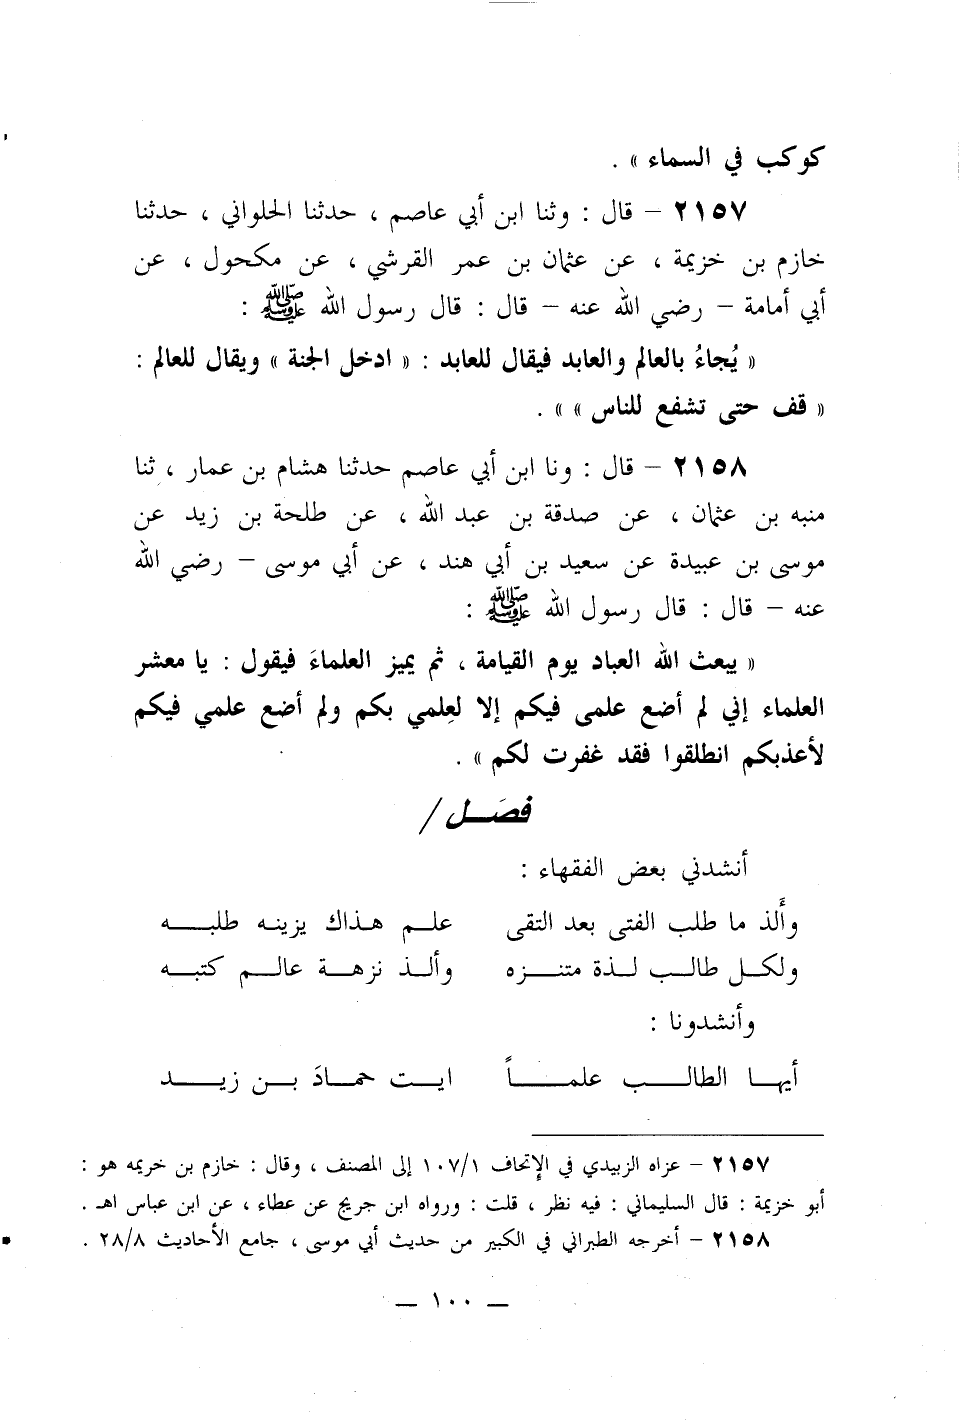 كوكب في السماء » .
٢١٥٧ – قال : وثنا ابن أبي عاصم ، حدثنا الحلواني ، حدثنا
خازم بن خزيمة ، عن عثمان بن عمر القرشي ، عن مكحول ، عن
أبي أمامة – رضي الله عنه – قال : قال رسول الله ﷺ :
« يُجاءُ بالعالم والعابد فيقال للعابد : « ادخل الجنة » ويقال للعالم :
« قف حتى تشفع للناس » » .
٢١٥٨ – قال : ونا ابن أبي عاصم حدثنا هشام بن عمار ، ثنا
منبه بن عثمان ، عن صدقة بن عبد الله ، عن طلحة بن زيد عن
موسى بن عبيدة عن سعيد بن أبي هند ، عن أبي موسى – رضي الله
عنه – قال : قال رسول الله ﷺ :
« يبعث الله العباد يوم القيامة ، ثم يميز العلماءَ فيقول : يا معشر
العلماء إني لم أضع علمى فيكم إلا لعِلمي بكم ولم أضع علمي فيكم
لأعذبكم انطلقوا فقد غفرت لكم » .
فصَـل /
أنشدني بعض الفقهاء :
وأَلذ ما طلب الفتى بعد التقى علـم هـذاك يزينـه طلبـه
ولكـل طالـب لـذة متنـزه وألـذ نزهـة عالـم كتبـه
وأنشدونا :
أيهـا الطالـب علمـاً ايـت حمـادَ بـن زيـد
٢١٥٧ – عزاه الزبيدي في الإتحاف ١٠٧/١ إلى المصنف ، وقال : خازم بن خريمه هو :
أبو خزيمة : قال السليماني : فيه نظر ، قلت : ورواه ابن جريج عن عطاء ، عن ابن عباس اهـ .
٢١٥٨ – أخرجه الطبراني في الكبير من حديث أبي موسى ، جامع الأحاديث ٢٨/٨ .
– ١٠٠ –